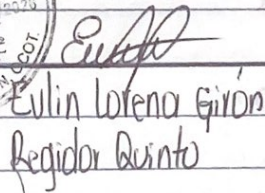 Eulin Lorena Girón
Regidor Quinto